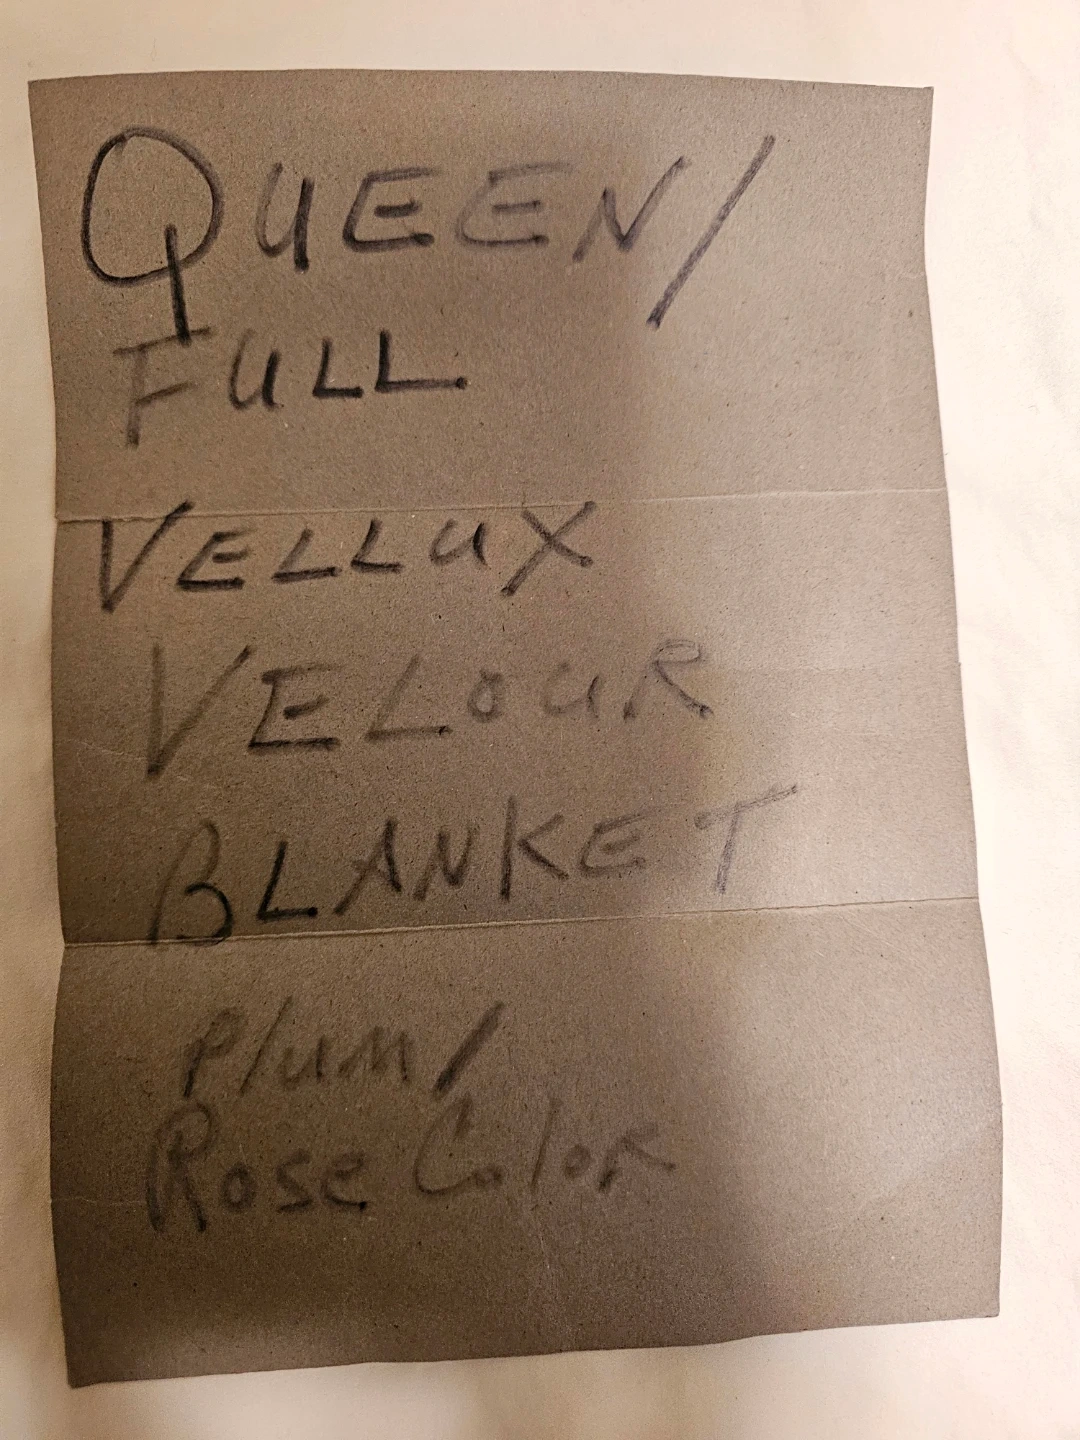 QUEEN/
FULL
VELLUX
VELOUR
BLANKET
Plum/
Rose Color